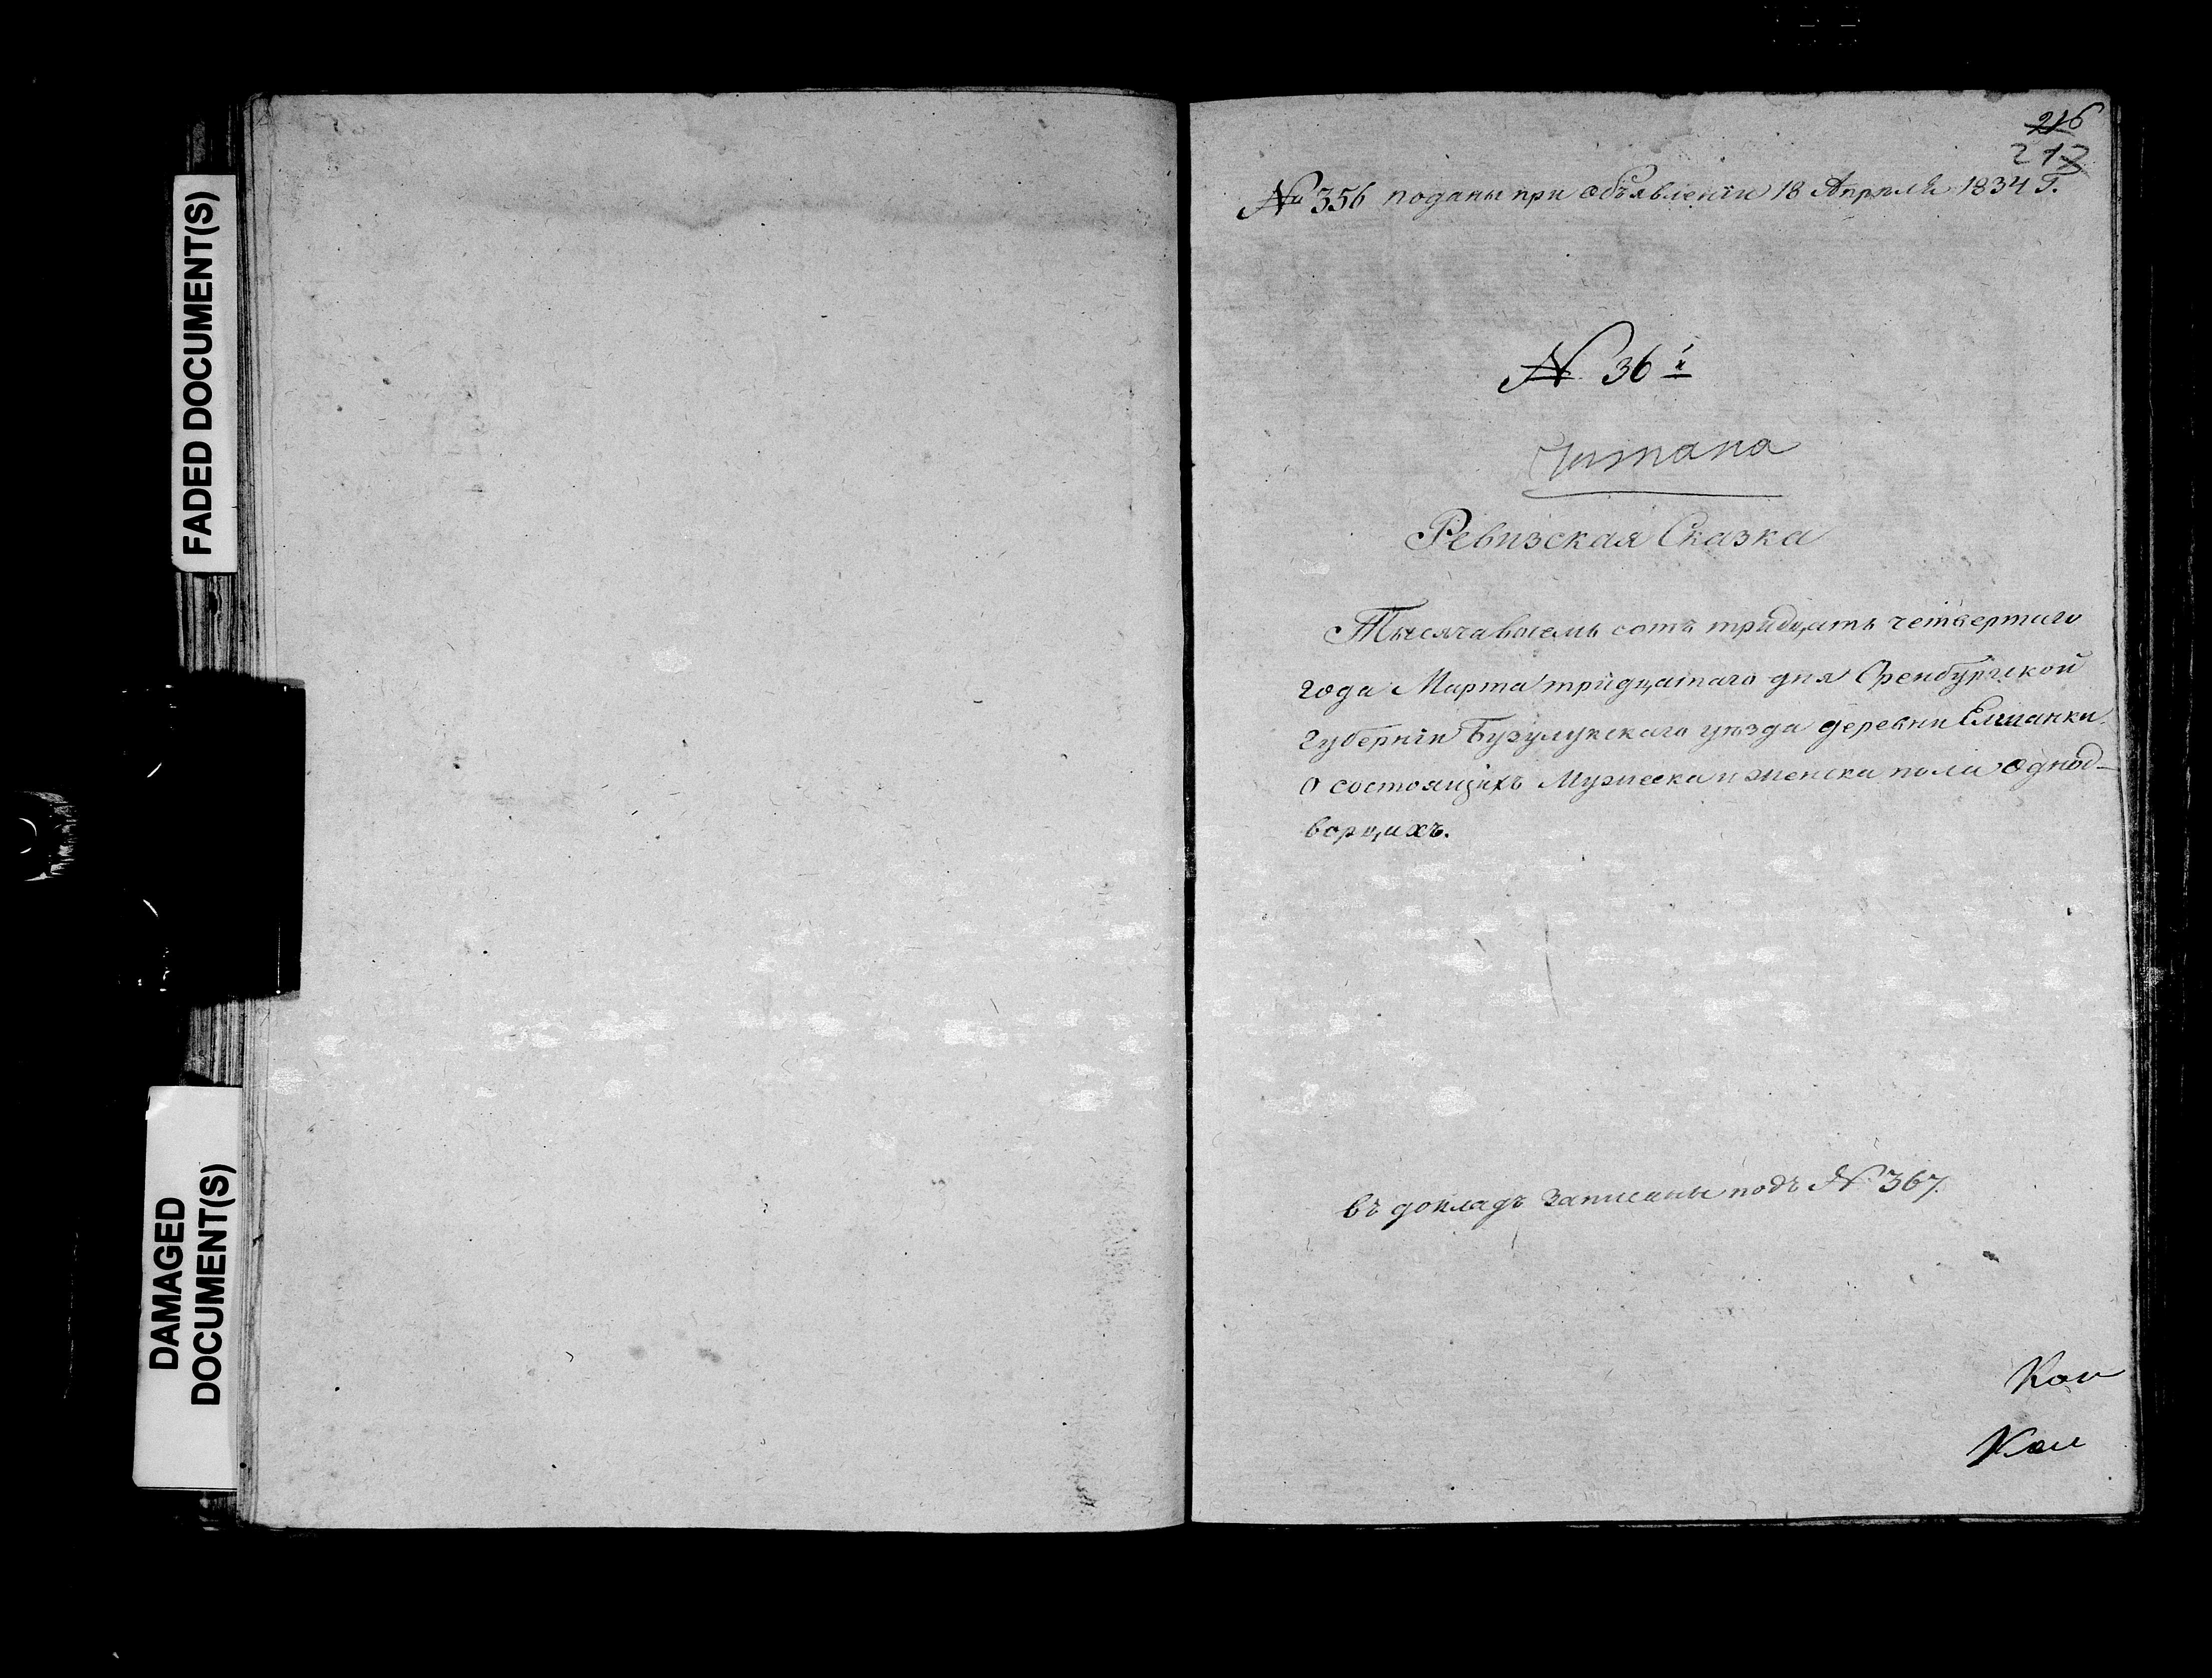 FADED DOCUMENT(S)
DAMAGED
DOCUMENT(S)
216
217
№ 356 поданы при объявленіи 18 Апреля 1834 Г.
№ 36й
Читана
Ревизская Сказка
Тысяча восемь сотъ тридцать четвертаго
года Марта тридцатаго дня Оренбургской
Губерніи Бузулукского уезда деревни Елшанки
О состоящихъ Мужеска и женска пола однод-
ворцахъ.
въ докладъ Записаны подъ № 367.